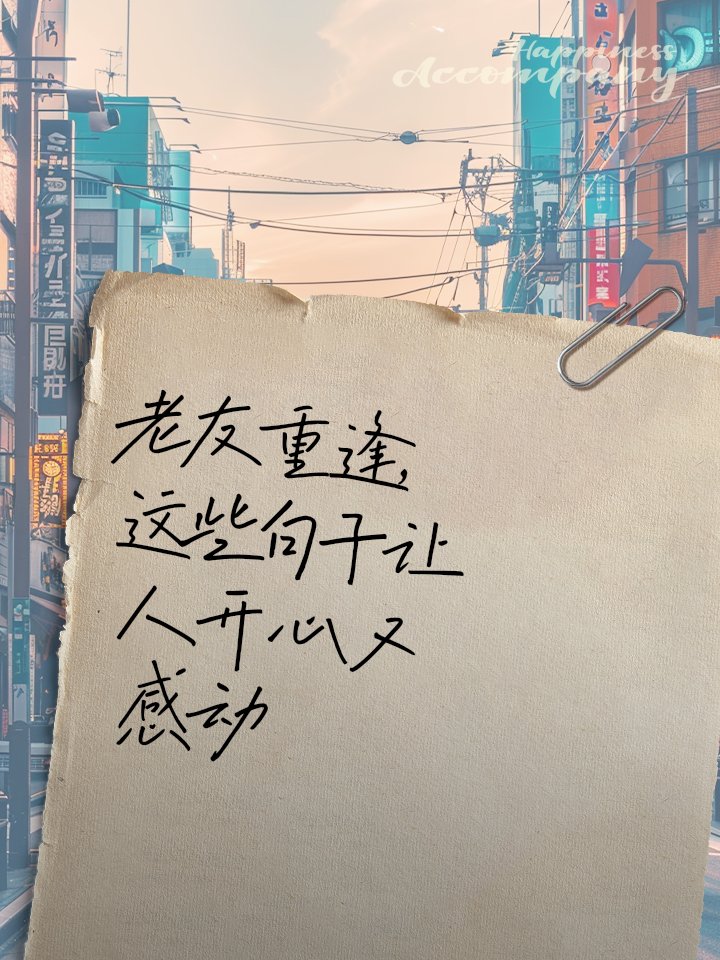 Happiness
Accompany
老友重逢,
这些句子让
人开心又
感动